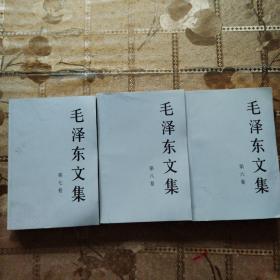 毛泽东文集
第七卷
毛泽东文集
第八卷
毛泽东文集
第六卷